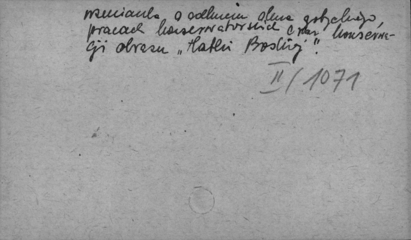 wzmianka o odkryciu okna gotyckiego,
pracach konserwatorskich oraz konserwa-
cji obrazu „Matki Boskiej”.
II/1071